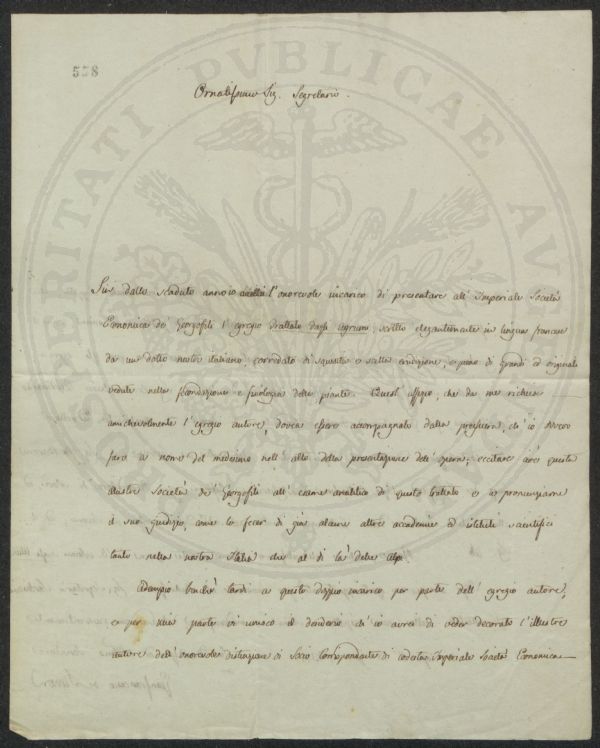 558
Ornatissimo Sig. Segretario.
Sin dallo scaduto anno io ebbi l'onorevole incarico di presentare all'Imperiale Società
Economica dei Georgofili l'egregio Trattato degli agrumi, scritto elegantemente in lingua francese
da un dotto nostro italiano, corredato di squisita e scelta erudizione, e pieno di grandi ed originali
vedute nella fecondazione e fisiologia delle piante. Quest'uffizio, che da me richiese
amichevolmente l'egregio autore, dovea essere accompagnato dalla preghiera, ch'io avrei
fatto a nome del medesimo nell'atto della presentazione dell'opera, eccitare cioè questa
illustre Società dei Georgofili all'esame analitico di questo trattato e a pronunziarne
il suo giudizio, come lo fecer di già alcune altre accademie ed istituti scientifici
tanto nella nostra Italia che al di là delle Alpi.
Adempio benchè tardi a questo doppio incarico per parte dell'egregio autore,
e per mia parte vi unisco il desiderio ch'io avrei di veder decorato l'illustre
autore dell'onorevole distinzione di Socio Corrispondente di codesta Imperiale Società Economica
PROSPERITATI PUBLICAE AUGENDAE